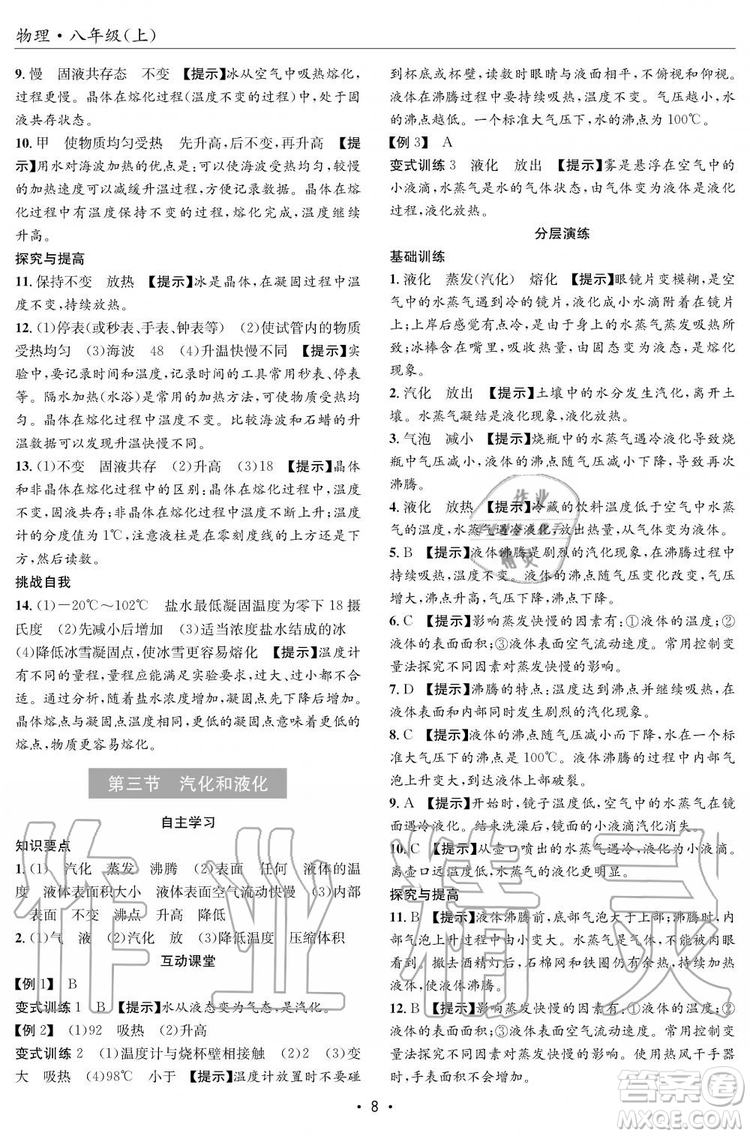 物理·八年级(上)
9. 慢　固液共存态　不变　【提示】冰从空气中吸热熔化，
过程更慢。晶体在熔化过程(温度不变的过程)中，处于固
液共存状态。
10. 甲　使物质均匀受热　先升高，后不变，再升高　【提
示】用水对海波加热的优点是：可以使物质均匀受热，较慢
的加热速度可以减缓升温过程，可以使物质熔化。晶体在熔
化过程中有温度保持不变的过程，熔化完成，温度继续
升高。
探究与提高
11. 保持不变　放热　【提示】冰是晶体，在凝固过程中温度
不变，持续放热。
12. (1)停表(或秒表、手表、钟表等)　(2)使试管内的物质
受热均匀　(3)海波　48　(4)升温快慢不同　【提示】实
验中，要记录时间和温度，记录时间的工具常用秒表、停表
等。隔水加热(水浴)是常用的加热方法，可使物质受热均
匀。晶体在熔化过程中温度不变。比较海波和石蜡的升
温数据可以发现升温快慢不同。
13. (1)不变　固液共存　(2)升高　(3)18　【提示】晶体
和非晶体在熔化过程中的区别：晶体在熔化过程中，温度
不变，固液共存；非晶体在熔化过程中，温度升高。温度
计的分度值为1℃，注意液柱是在零刻度线的上方还是下
方，然后读数。
挑战自我
14. (1)－20℃～102℃　盐水最低凝固温度为零下18摄
氏度　(2)先减小后增大　(3)适当浓度盐水结成的冰
(4)降低冰雪凝固点，使冰雪更容易熔化　【提示】温度计
有不同的量程，量程应适度，过大或过小都不合适。凝固
点与盐水浓度有关，随着盐水浓度增加，凝固点先降低后
增大。晶体熔点与凝固点相同，降低凝固点就是降低
熔点，物质更容易熔化。
第三节　汽化和液化
自主学习
知识要点
1. (1)液　汽化　蒸发　沸腾　(2)表面　任何　液体的温
度　液体表面积大小　液体表面空气流动快慢　(3)内部
表面　不变　沸点　升高　降低
2. (1)气　液　(2)汽化　放　(3)降低温度　压缩体积
互动课堂
【例1】　B
变式训练1　B　【提示】水从液态变为气态，是汽化。
【例2】　(1)92　吸热　(2)升高
变式训练2　(1)温度计与烧杯壁相接触　(2)③　(3)变
大　吸热　(4)98℃　小于　【提示】温度计放置时不要碰
到杯底或杯壁，读数时眼睛与液面相平，不俯视和仰视。
液体在沸腾过程中要持续吸热，温度不变。气压越小，水
的沸点越低。一个标准大气压下，水的沸点为100℃。
【例3】　A
变式训练3　液化　放出　【提示】雾是悬浮在空气中的
小液滴，水蒸气是水的气体状态，由气体变为液体是液化
过程，液化放热。
分层演练
基础训练
1. 液化　蒸发(汽化)　熔化　【提示】眼镜片变模糊，是空
气中的水蒸气遇到冷的镜片，液化成小水滴附着在镜片
上；上岸后感觉有点冷，是由于身上的水蒸气蒸发吸热；
冰棒含在嘴里，过一会儿就没了，由固态变为液态，是熔化
现象。
2. 汽化　放出　【提示】土壤中的水分发生汽化，离开土
壤。水蒸气凝结是液化现象，液化放热。
3. 气泡　减小　【提示】烧瓶中的水蒸气遇冷液化导致烧
瓶中气压减小。液体的沸点随气压的减小而减小，导致
再次沸腾。
4. 液化　放热　【提示】冷藏的饮料温度低于空气中水蒸
气的温度，水蒸气遇冷液化，放出热量。
5. B　【提示】液体沸腾是剧烈的汽化现象，发生在液体表
面和内部，有固定的沸点，沸腾吸热，沸点随气压变化改变，气
压升高，沸点升高，气压下降，沸点下降。
6. C　【提示】影响蒸发快慢的因素有：①液体的温度；②液
体的表面面积；③液体表面空气流动速度。常用控制变
量法探究不同因素对蒸发快慢的影响。
7. D　【提示】沸腾的特点：温度达到沸点后温度不变；在
液体表面和内部同时发生的剧烈的汽化现象。
8. C　【提示】液体的沸点随气压的减小而减小，一个标准
大气压下的沸点是100℃。液体沸腾时，气泡上升变大，
到液体上面破裂。
9. A　【提示】开始时，镜子温度低，空气中的水蒸气在镜
面遇冷液化。结束洗澡后，镜面的小液滴汽化消失。
10. C　【提示】从壶口喷出的水蒸气温度高于空气温度，
离壶口远处的水蒸气遇冷的液化更明显。
探究与提高
11. B　【提示】液体沸腾前，底部气泡小，越往上越小；沸腾时，内
部气泡由小变大。水蒸气是无色气体，不能被肉眼
看到。撤去酒精灯后，石棉网和铁圈都有余热，可以使
液体沸腾。
12. B　【提示】影响蒸发快慢的因素有：①液体的温度；②
液体的表面积；③液体表面空气流动速度。使用热风干手器
时，提高了液体的温度，加快了液体表面空气流动速度。
·8·
作业精灵
作业精灵
答案圈
MXQE.COM